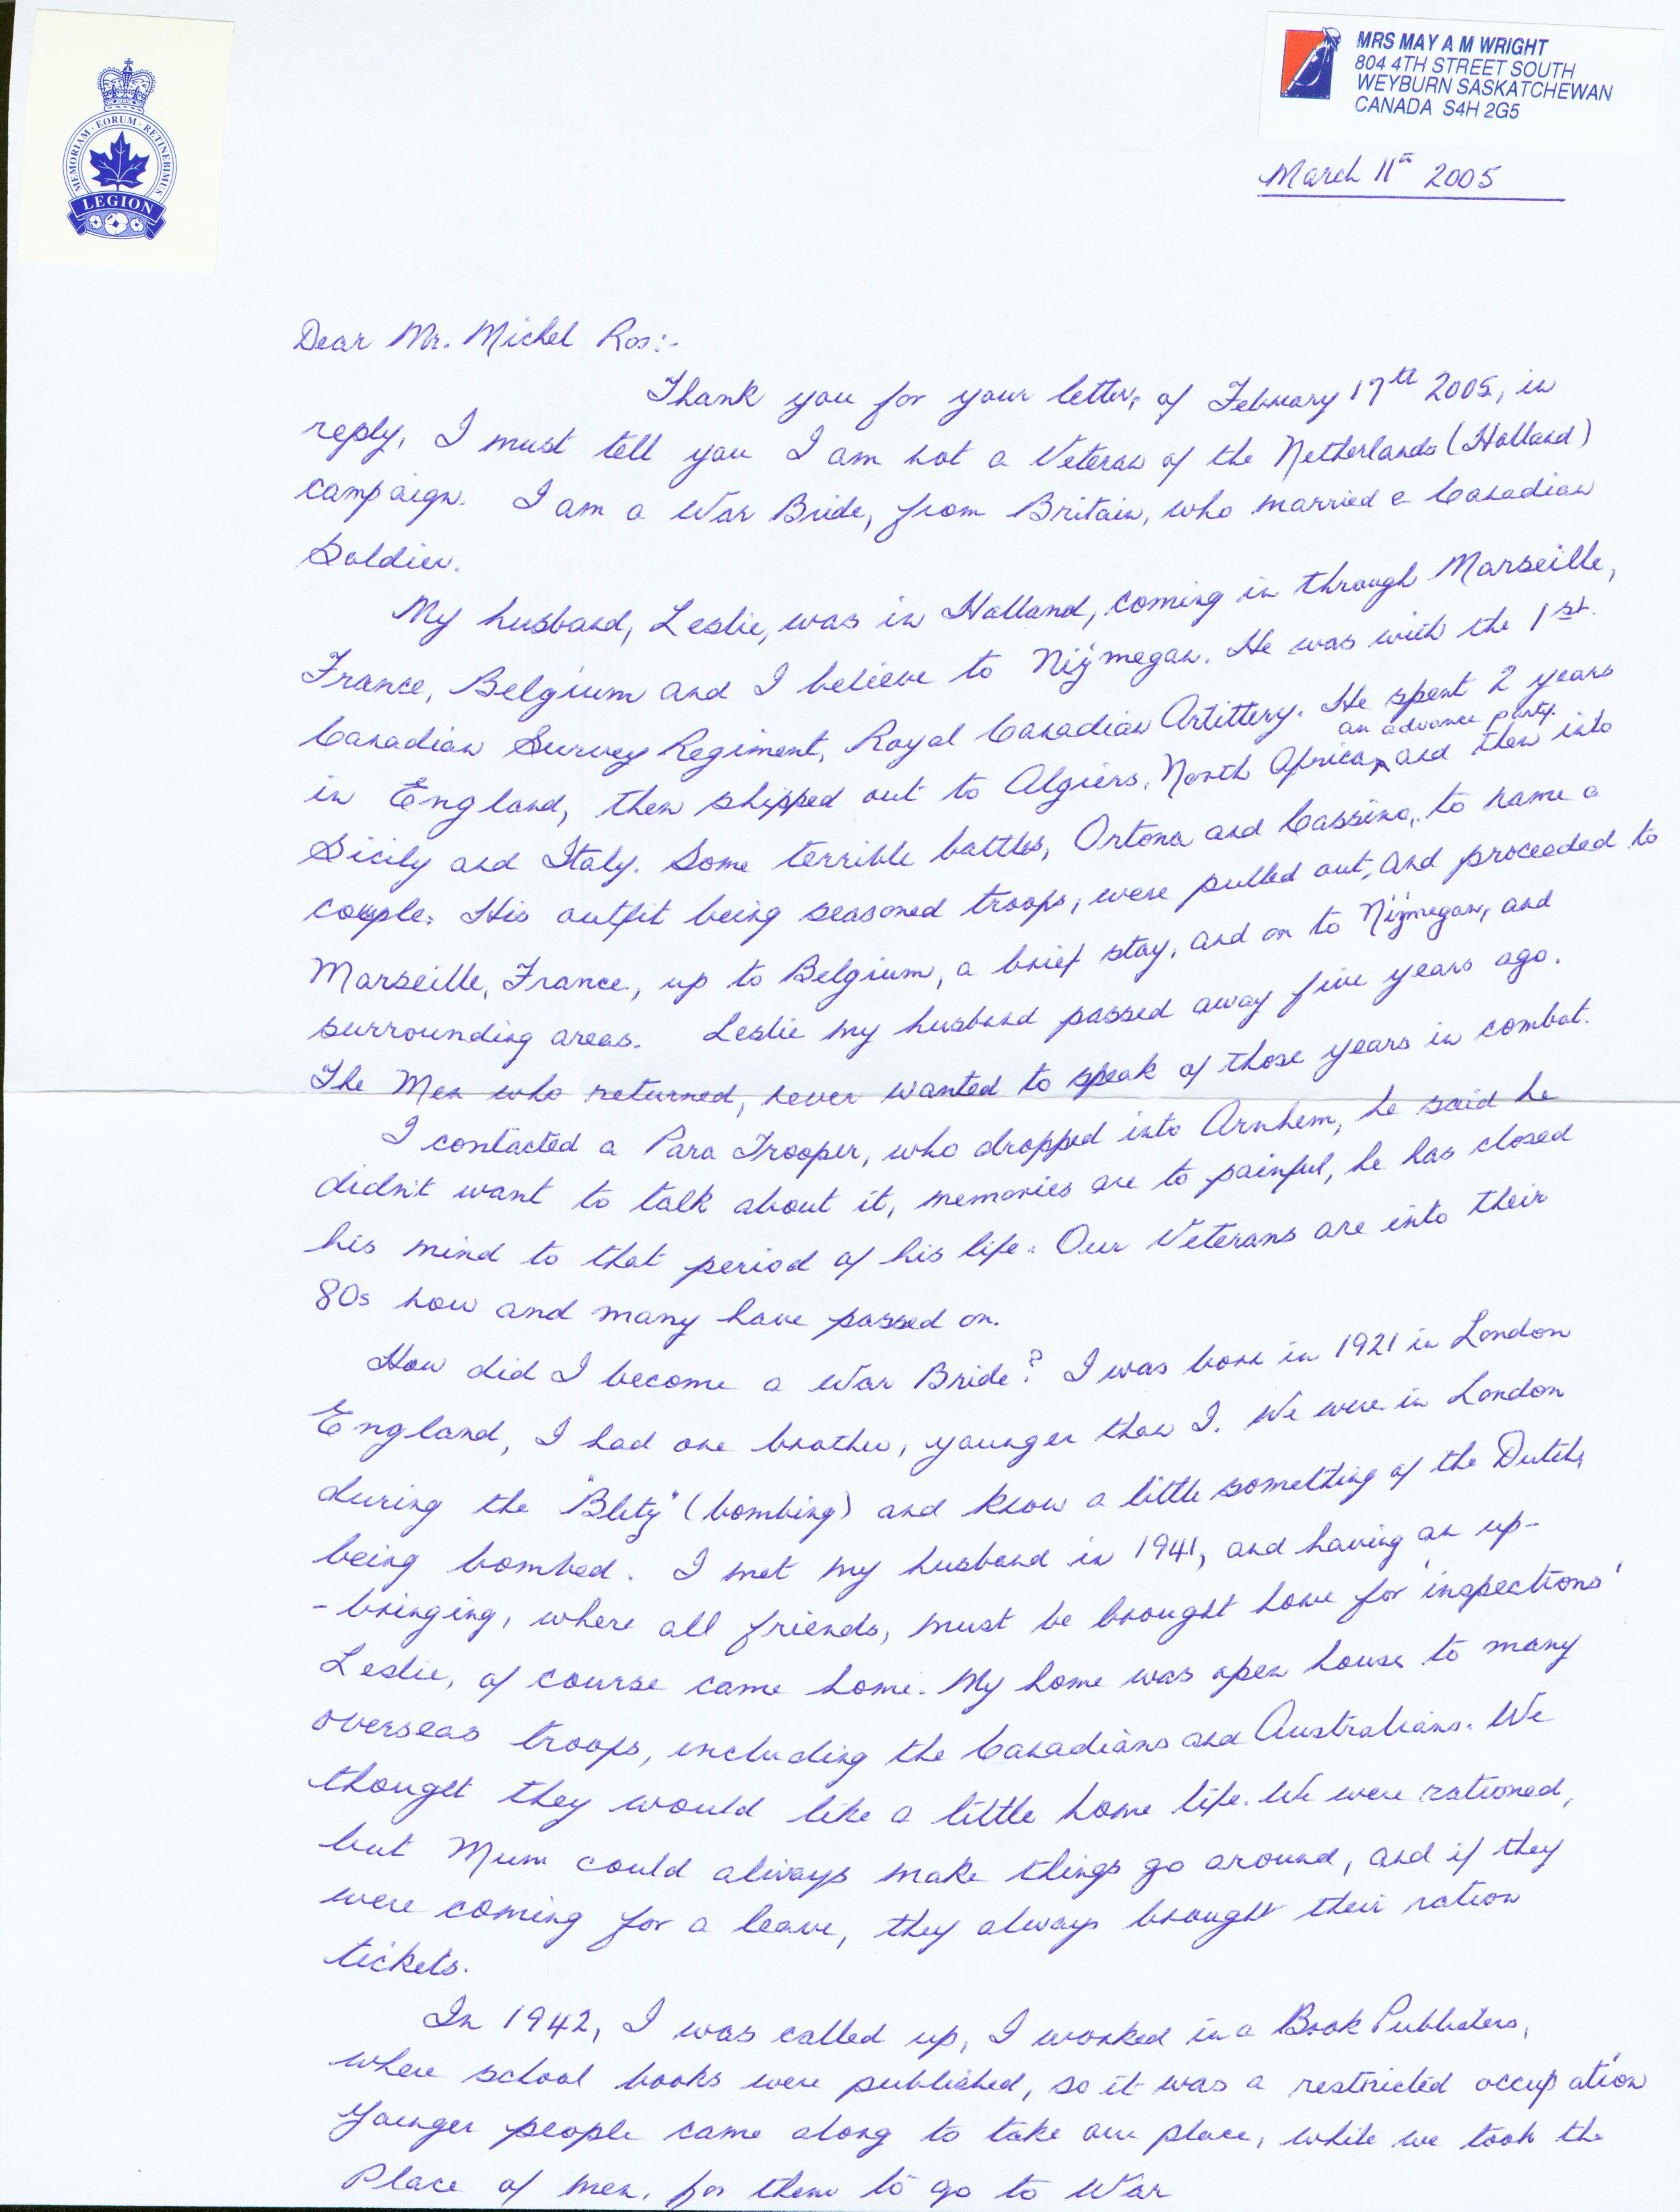 MEMORIAM · EORUM · RETINEBIMUS
LEGION
MRS MAY A M WRIGHT
804 4TH STREET SOUTH
WEYBURN SASKATCHEWAN
CANADA S4H 2G5
March 11th 2005
Dear Mr. Michel Ros:-
Thank you for your letter, of February 17th 2005, in
reply, I must tell you I am not a Veteran of the Netherlands (Holland)
campaign. I am a War Bride, from Britain, who married a Canadian
Soldier.
My husband, Leslie, was in Holland, coming in through Marseille,
France, Belgium and I believe to Nijmegan. He was with the 1st.
Canadian Survey Regiment, Royal Canadian Artittery. He spent 2 years
an advance party.
in England, then shipped out to Algiers, North Africa, and then into
Sicily and Italy. Some terrible battles, Ortona and Cassino, to name a
couple. His outfit being seasoned troops, were pulled out, and proceeded to
Marseille, France, up to Belgium, a brief stay, and on to Nijmegan, and
surrounding areas. Leslie my husband passed away five years ago.
The Men who returned, never wanted to speak of those years in combat.
I contacted a Para Trooper, who dropped into Arnhem, he said he
didn't want to talk about it, memories are to painful, he has closed
his mind to that period of his life. Our Veterans are into their
80s now and many have passed on.
How did I become a War Bride? I was born in 1921 in London
England, I had one brother, younger than I. We were in London
during the "Blitz" (bombing) and know a little something of the Dutch,
being bombed. I met my husband in 1941, and having an up-
-bringing, where all friends, must be brought home for 'inspections'
Leslie, of course came home. My home was open house to many
overseas troops, including the Canadians and Australians. We
thought they would like a little home life. We were rationed,
but Mum could always make things go around, and if they
were coming for a leave, they always brought their ration
tickets.
In 1942, I was called up, I worked in a Book Publishers,
where school books were published, so it was a restricted occupation
Younger people came along to take our place, while we took the
Place of men, for them to go to War